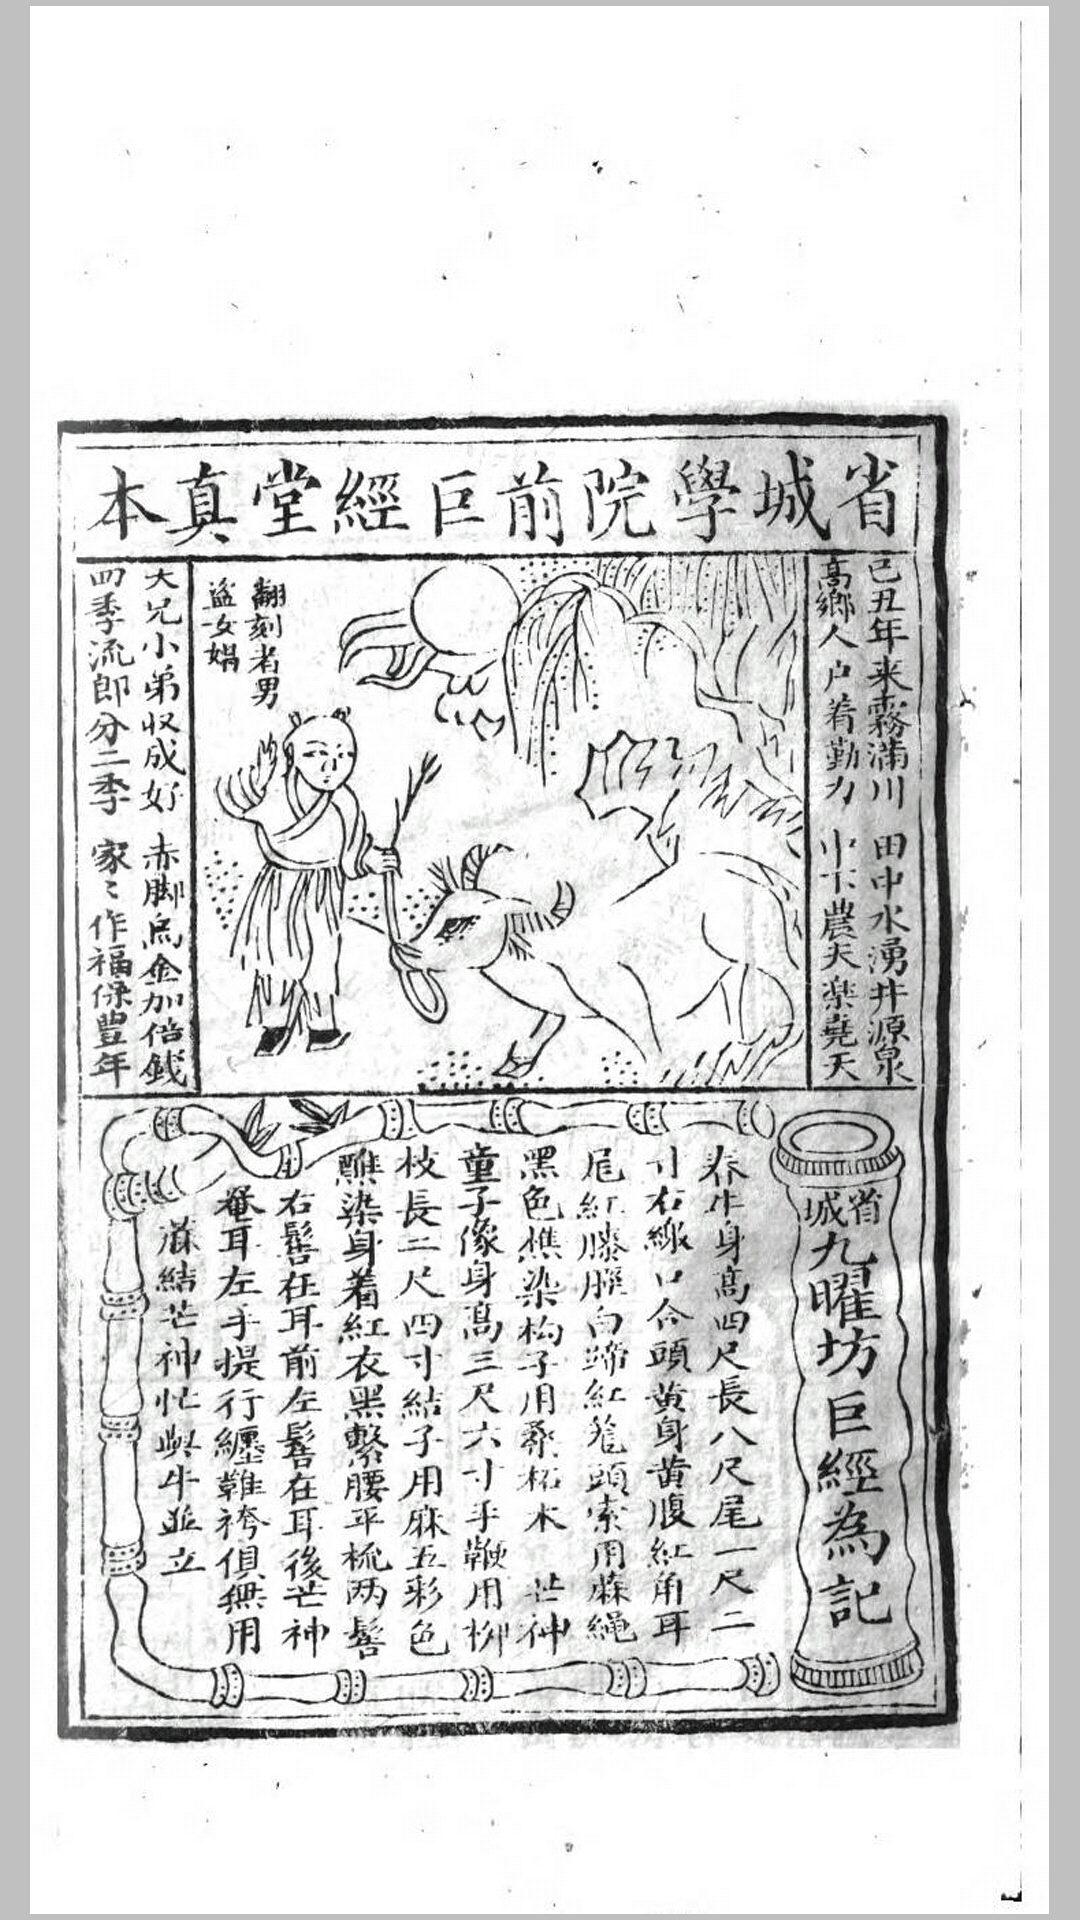 省城學院前巨經堂真本
己丑年来霧滿川 田中水湧井源泉
高鄉人户着勤力 小下農夫楽堯天
翻刻者男
盜女娼
大兄小弟収成好 赤脚烏金加倍錢
四季流郎分二季 家〻作福保豊年
省城九曜坊巨經為記
春牛身高四尺長八尺尾一尺二
寸右繳口合頭黄身黄腹紅角耳
尾紅膝脛白蹄紅篭頭索用蔴繩
黑色憔染构子用桑柘木 芒神
童子像身高三尺六寸手鞭用柳
枝長二尺四寸結子用麻五彩色
醮染身着紅衣黑繫腰平梳两髻
右髻在耳前左髻在耳後芒神
罨耳左手提行纏鞋袴俱無用
蔴結芒神忙與牛並立